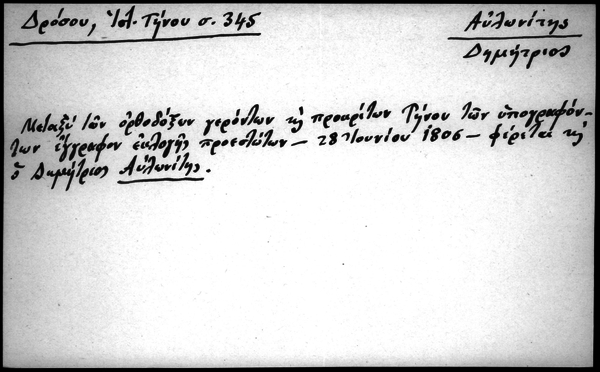 Δρόσου, Ἱστ. Τήνου σ. 345
Αὐλωνίτης
Δημήτριος
Μεταξὺ τῶν ὀρθοδόξων γερόντων κὴ προκρίτων Τήνου τῶν ὑπογραφόν-
των ἔγγραφον ἐκλογῆς προεστώτων – 28 Ἰουνίου 1806 – φέρεται κὴ
ὁ Δημήτριος Αὐλωνίτης.